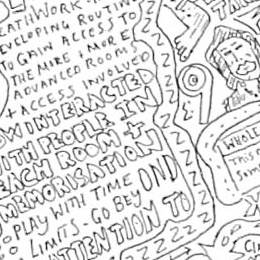 DEATHWORK IN
DEVELOPING ROUTIN
TO GAIN ACCESS TO
THE MIRE + MORE
ADVANCED ROOMS
+ ACCESS INVOLVED
INTERACTED
WITH PEOPLE IN
EACH ROOM +
MEMORISATION
PLAY WITH TIME
LIMITS. GO BEYOND
ATTENTION TO
WHOLE
THIS
SOM